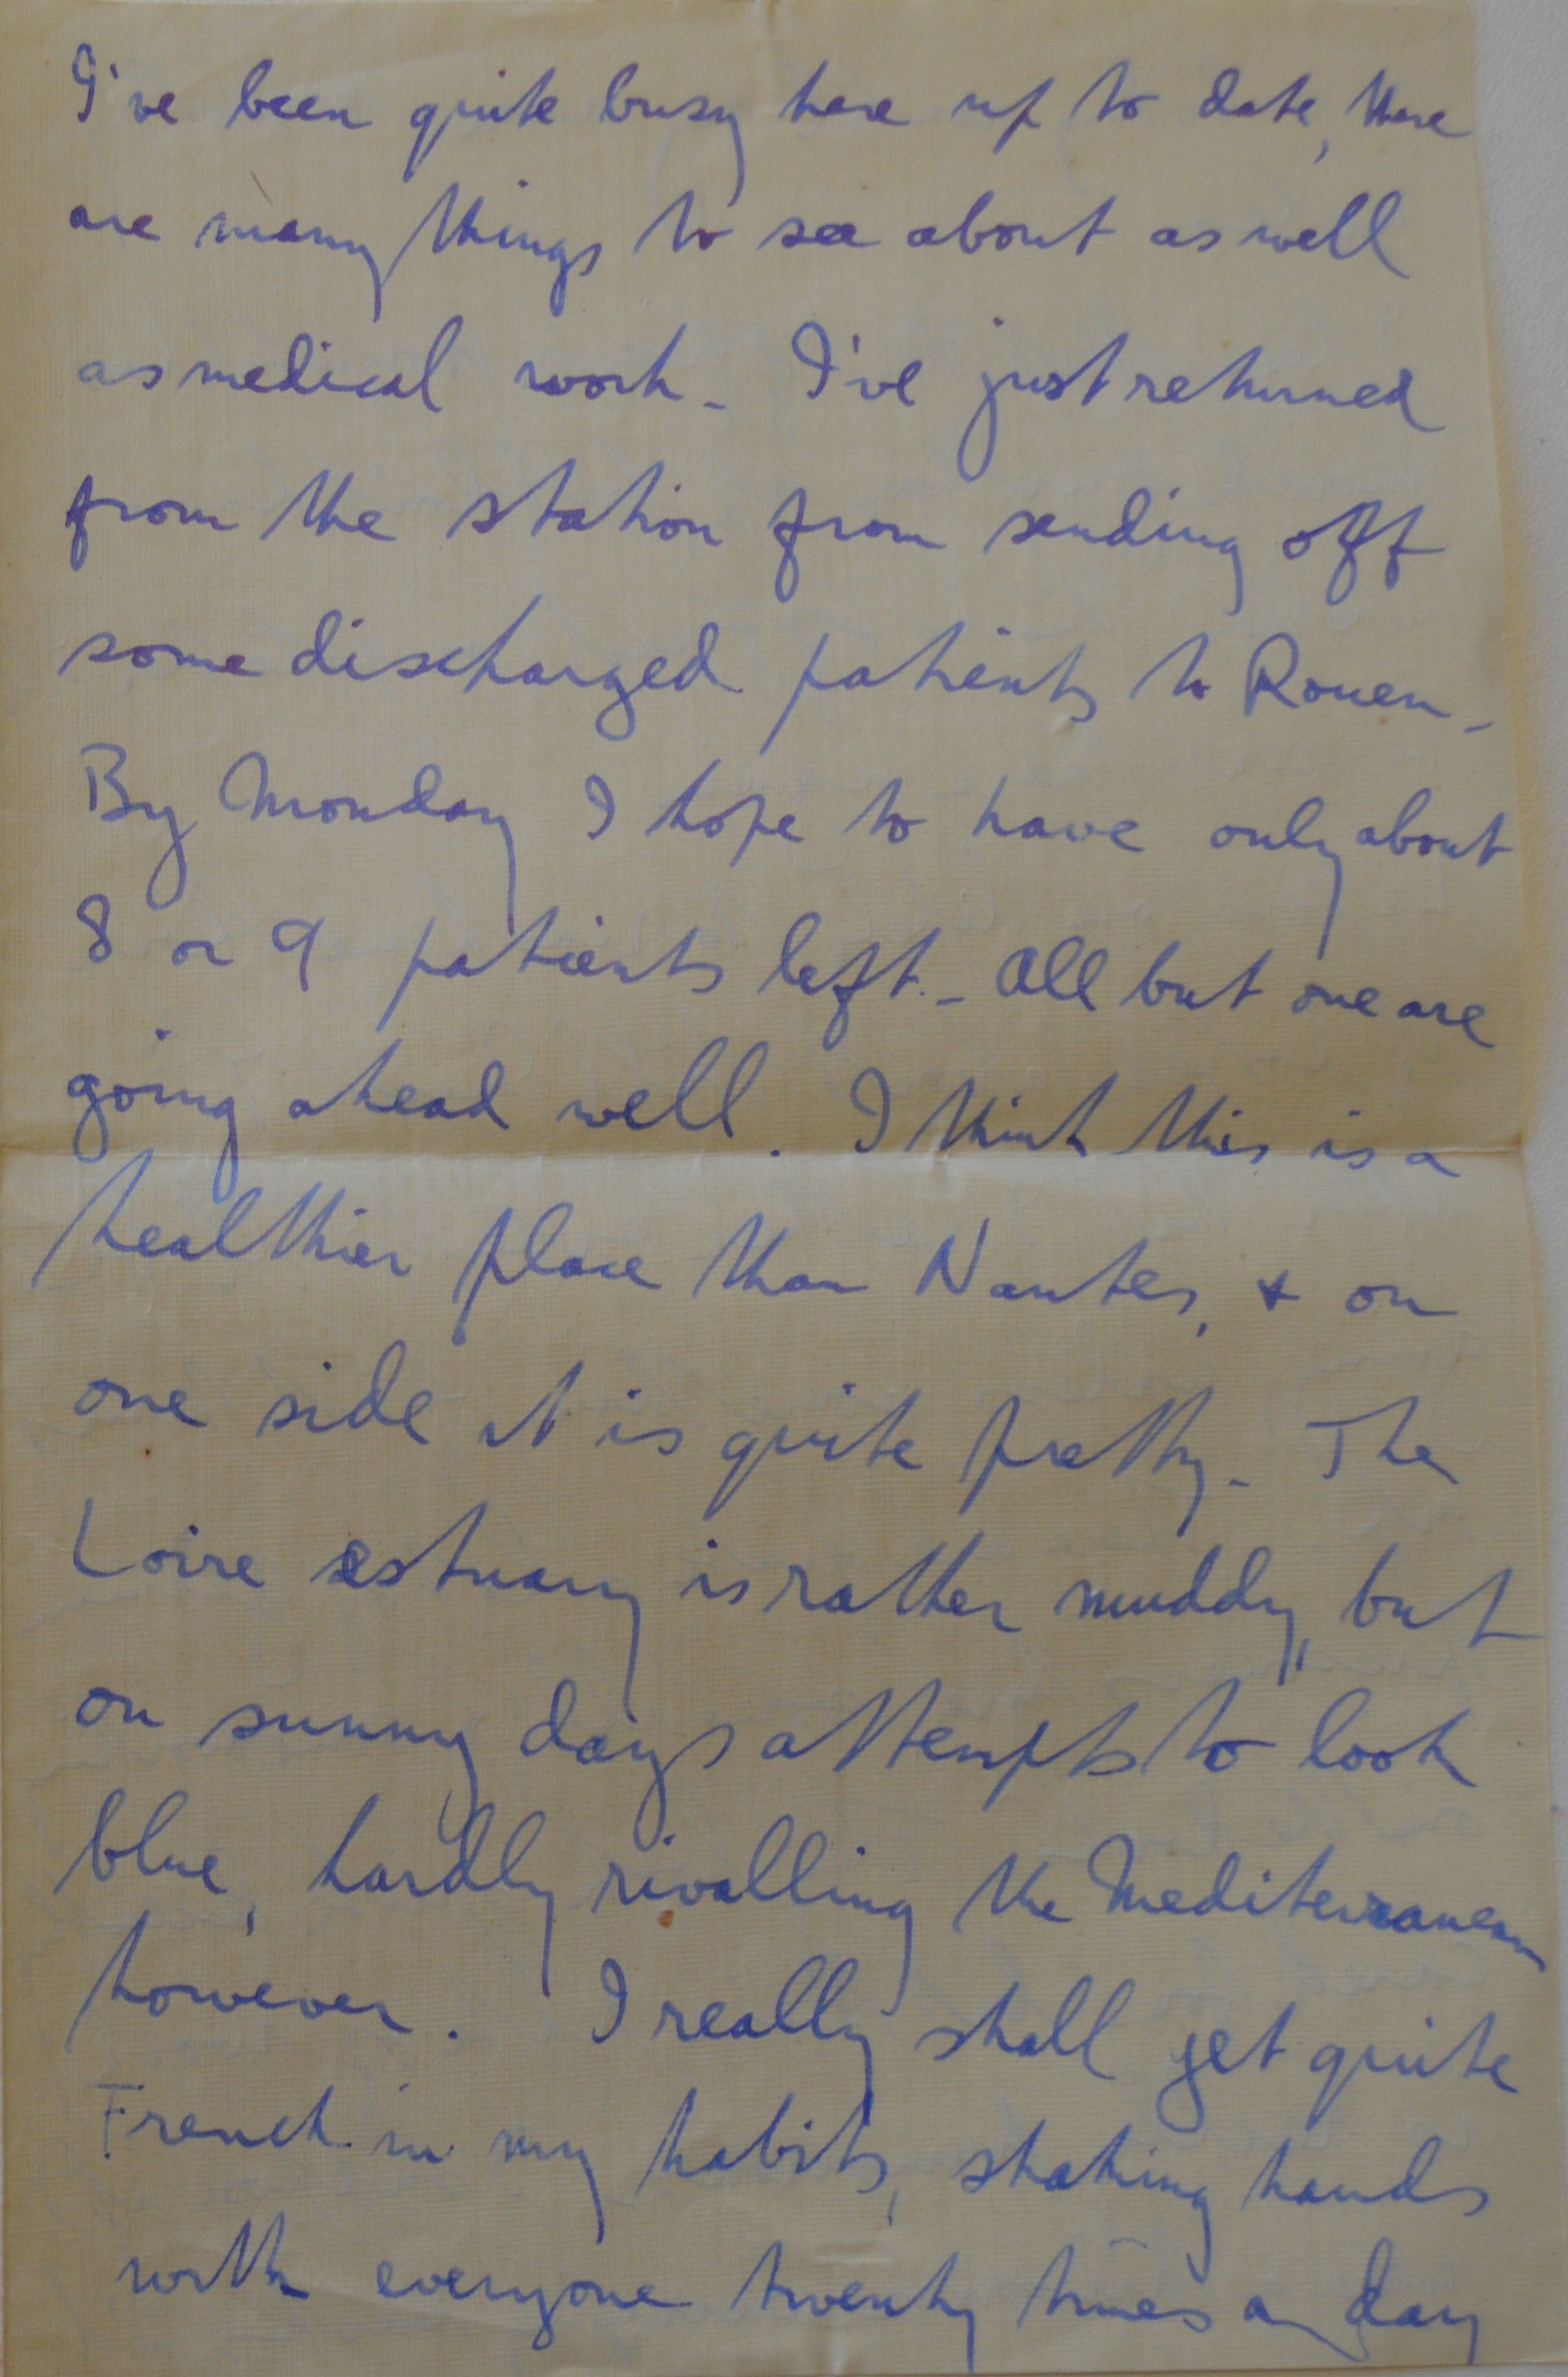 I've been quite busy here up to date, there
are many things to see about as well
as medical work - I've just returned
from the station from sending off
some discharged patients to Rouen -
By Monday I hope to have only about
8 or 9 patients left - All but one are
going ahead well. I think this is a
healthier place than Nantes, & on
one side it is quite pretty - The
Loire estuary is rather muddy, but
on sunny days attempts to look
blue, hardly rivalling the Mediterranean
however. I really shall get quite
French in my habits, shaking hands
with everyone twenty times a day